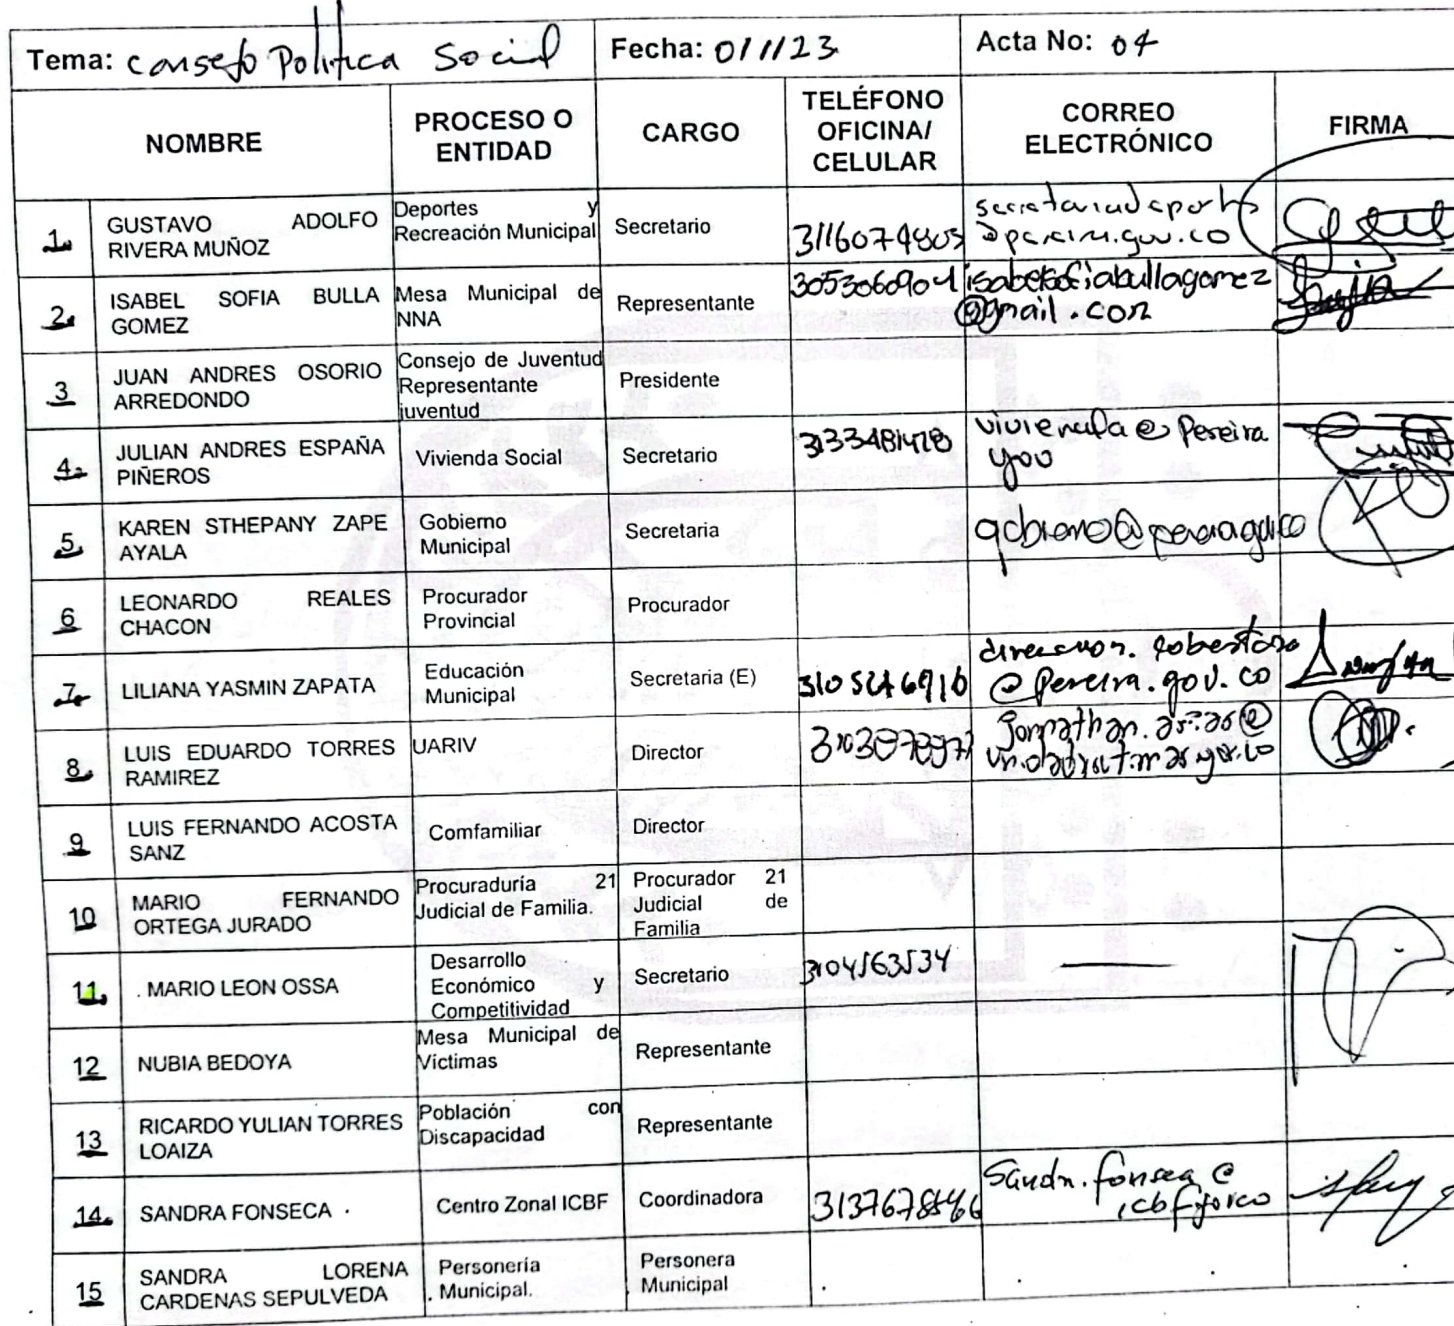 Tema: consejo Politica Social Fecha: 01/1/23 Acta No: 04
NOMBRE PROCESO O ENTIDAD CARGO TELÉFONO OFICINA/ CELULAR CORREO ELECTRÓNICO FIRMA
1. GUSTAVO ADOLFO
RIVERA MUÑOZ
Deportes y
Recreación Municipal
Secretario
3116074805
@pereira.gov.co
2. ISABEL SOFIA BULLA
GOMEZ
Mesa Municipal de
NNA
Representante
3053060904
isabelsofiabullagomez
@gmail.com
3 JUAN ANDRES OSORIO
ARREDONDO
Consejo de Juventud
Representante
juventud
Presidente
4. JULIAN ANDRES ESPAÑA
PIÑEROS
Vivienda Social
Secretario
vivienda@Pereira
gov
5. KAREN STHEPANY ZAPE
AYALA
Gobierno
Municipal
Secretaria
6 LEONARDO REALES
CHACON
Procurador
Provincial
Procurador
7. LILIANA YASMIN ZAPATA
Educación
Municipal
Secretaria (E)
@pereira.gov.co
8. LUIS EDUARDO TORRES
RAMIREZ
UARIV
Director
9 LUIS FERNANDO ACOSTA
SANZ
Comfamiliar
Director
10 MARIO FERNANDO
ORTEGA JURADO
Procuraduría 21
Judicial de Familia.
Procurador 21
Judicial de
Familia
11. MARIO LEON OSSA
Desarrollo
Económico y
Competitividad
Secretario
3104563534
12 NUBIA BEDOYA
Mesa Municipal de
Víctimas
Representante
13 RICARDO YULIAN TORRES
LOAIZA
Población con
Discapacidad
Representante
14. SANDRA FONSECA
Centro Zonal ICBF
Coordinadora
15 SANDRA LORENA
CARDENAS SEPULVEDA
Personería
Municipal.
Personera
Municipal